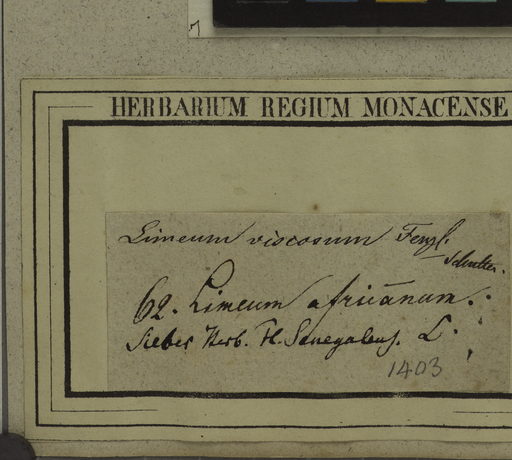 HERBARIUM REGIUM MONACENSE
Limeum viscosum Fenzl.
62. Limeum africanum.
Sieber Herb. Fl. Senegalens. L.
1403